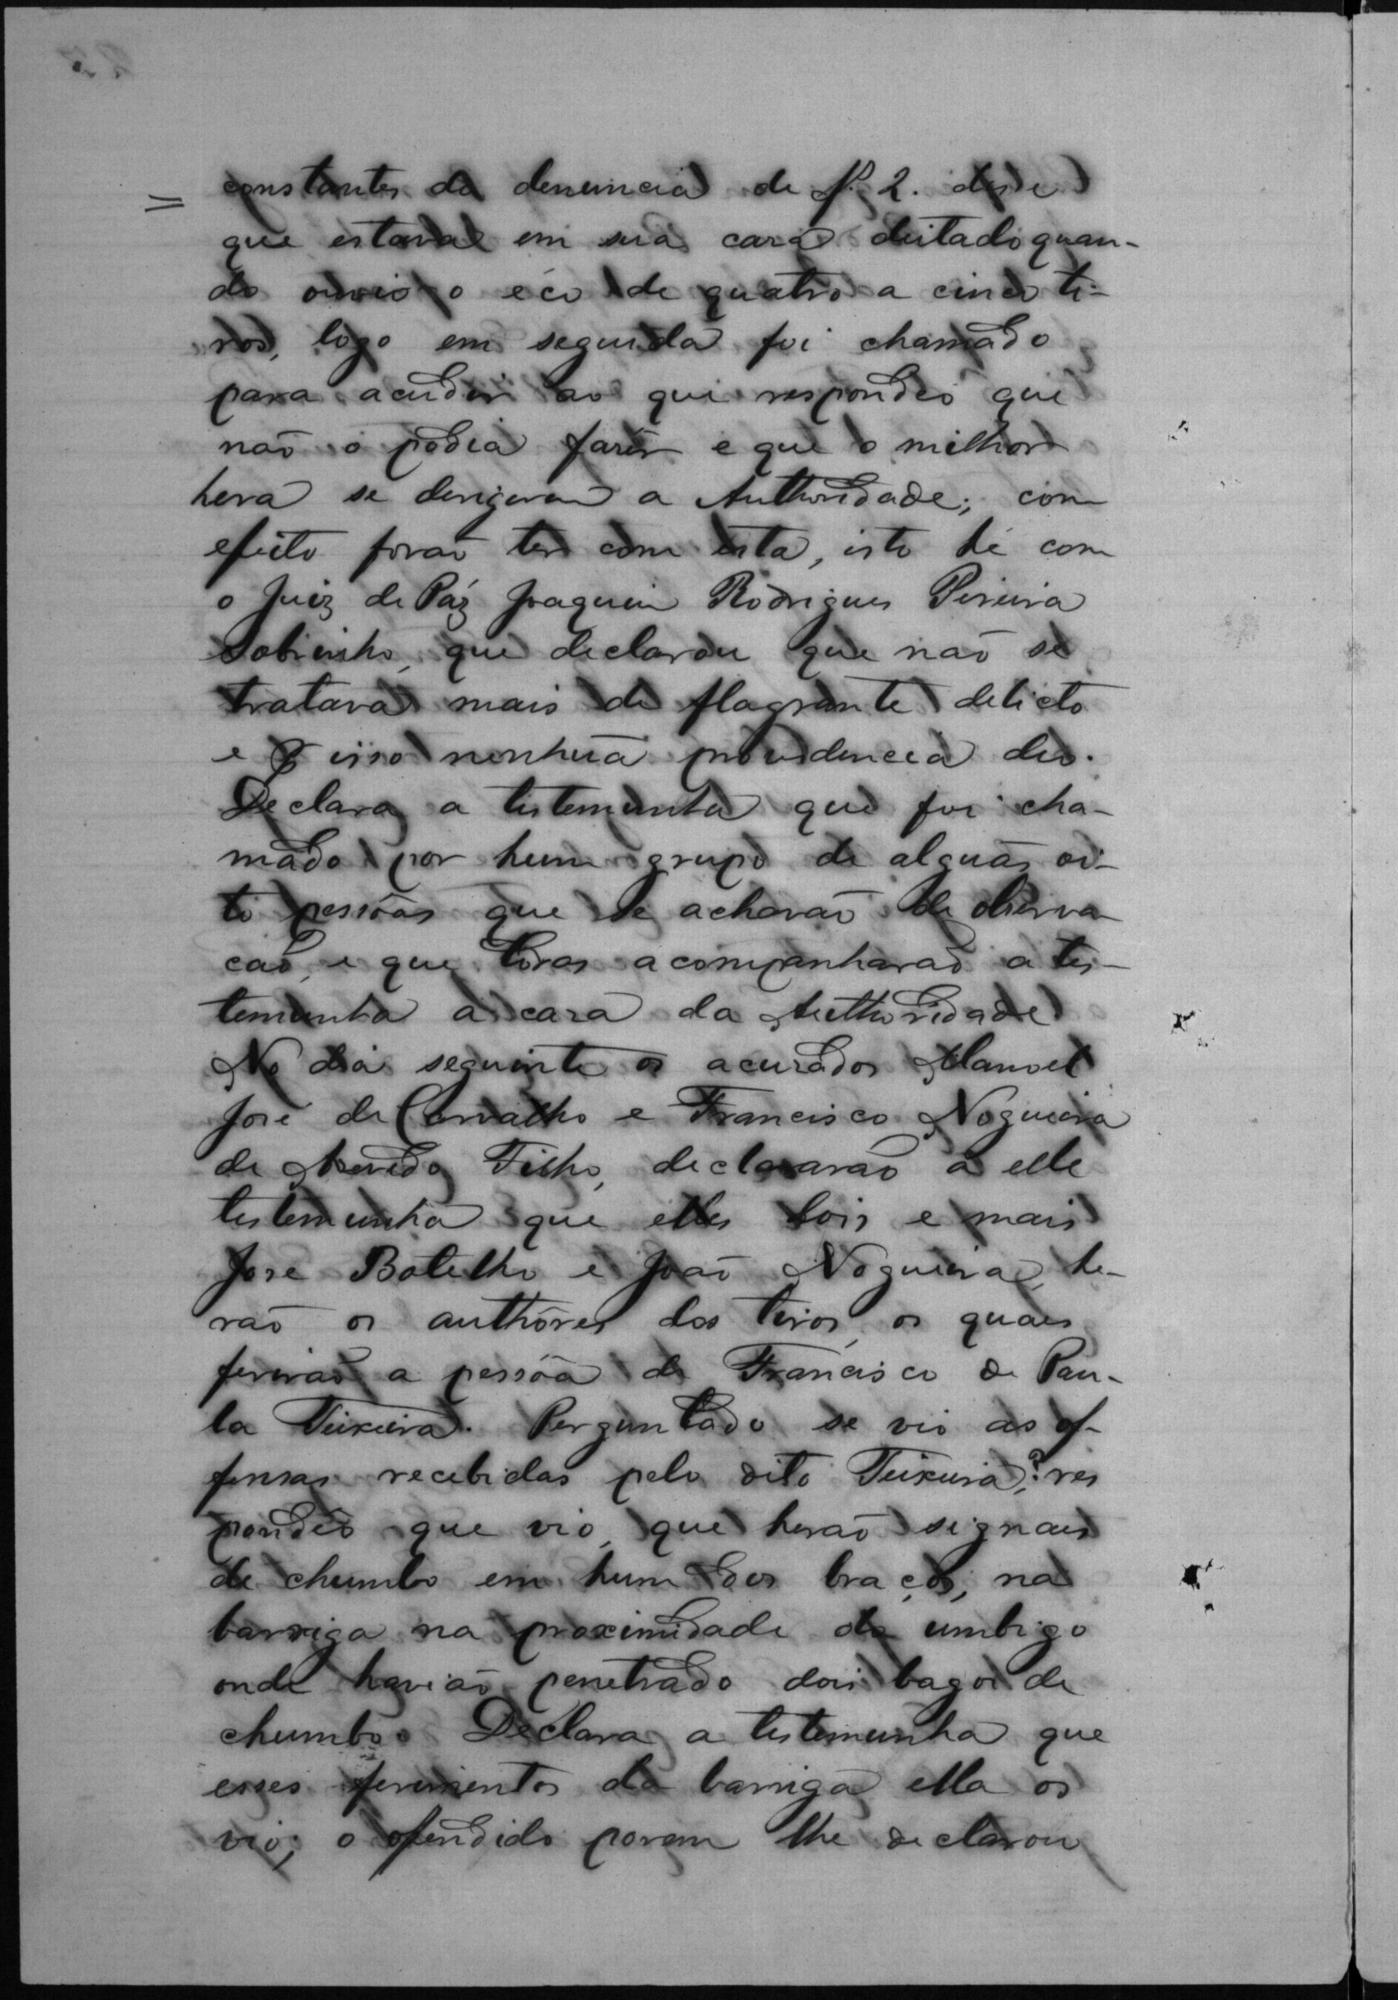 constantes da denuncia de f. 2. disse
que estava em sua caza deitado quan-
do ouvio o éco de quatro a cinco ti-
ros, logo em seguida foi chamado
para acudir ao que respondêo que
não o podia fazêr e que o milhor
hera se derigirem a Authoridade; com
efeito forão ter com esta, isto hé com
o Juiz de Páz Joaquim Rodrigues Pereira
Sobrinho, que declarou que não se
tratava mais de flagrante delicto
e p isso nenhuã providencia deo.
Declara a testemunha que foi cha-
mado por hum grupo de alguãs oi-
to pessôas que se achavão de observa-
cão, e que todas acompanharão a tes-
temunha a caza da Authoridade
No dia seguinte os acuzados Manoel
José de Carvalho e Francisco Nogueira
de Azevedo Filho, declararão a elle
testemunha que elles dois e mais
José Botelho e João Nogueira, he-
rão os authôres dos tiros, os quaes
ferirão a pessôa de Francisco de Pau-
la Teixeira. Perguntado se vio as of-
fensas recebidas pelo dito Teixeira? res
pondêo que vio, que herão signaes
de chumbo em hum dos braços, na
barriga na proximidade do umbigo
onde havião penetrado dois bagos de
chumbo. Declara a testemunha que
esses ferimentos da barriga ella os
vio; o ofendido porem lhe declarou